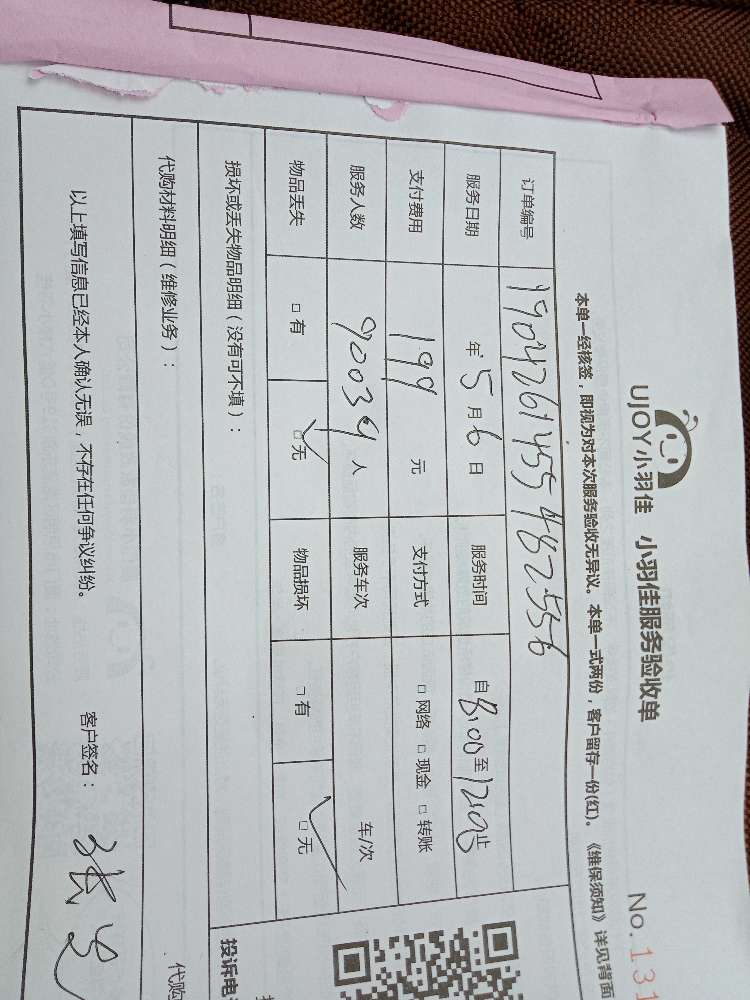 UJOY小羽佳 小羽佳服务验收单
No. 131
本单一经核签，即视为对本次服务验收无异议。本单一式两份，客户留存一份(红)。《维保须知》详见背面
订单编号 1904261455482556
服务日期 年 5 月 6 日 服务时间 自 8:00 至 12:00 止
支付费用 199 元 支付方式 □ 网络 □ 现金 □ 转账
服务人数 90039 人 服务车次 车/次
物品丢失 □ 有 □ 无 物品损坏 □ 有 □ 无
损坏或丢失物品明细（没有可不填）：
投诉电
代购材料明细（维修业务）：
代购
以上填写信息已经本人确认无误，不存在任何争议纠纷。 客户签名：张